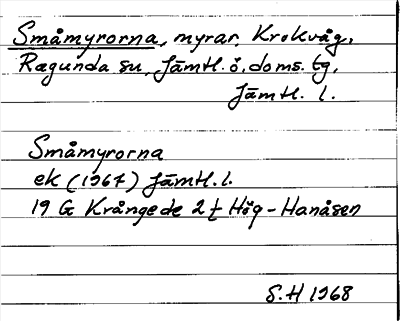 Småmyrorna, myrar, Krokvåg,
Ragunda sn, Jämtl. ö. doms. tg,
Jämtl. l.
Småmyrorna
ek (1967) Jämtl. l.
19 G Krångede 2 f Hög-Hanåsen
S.H 1968